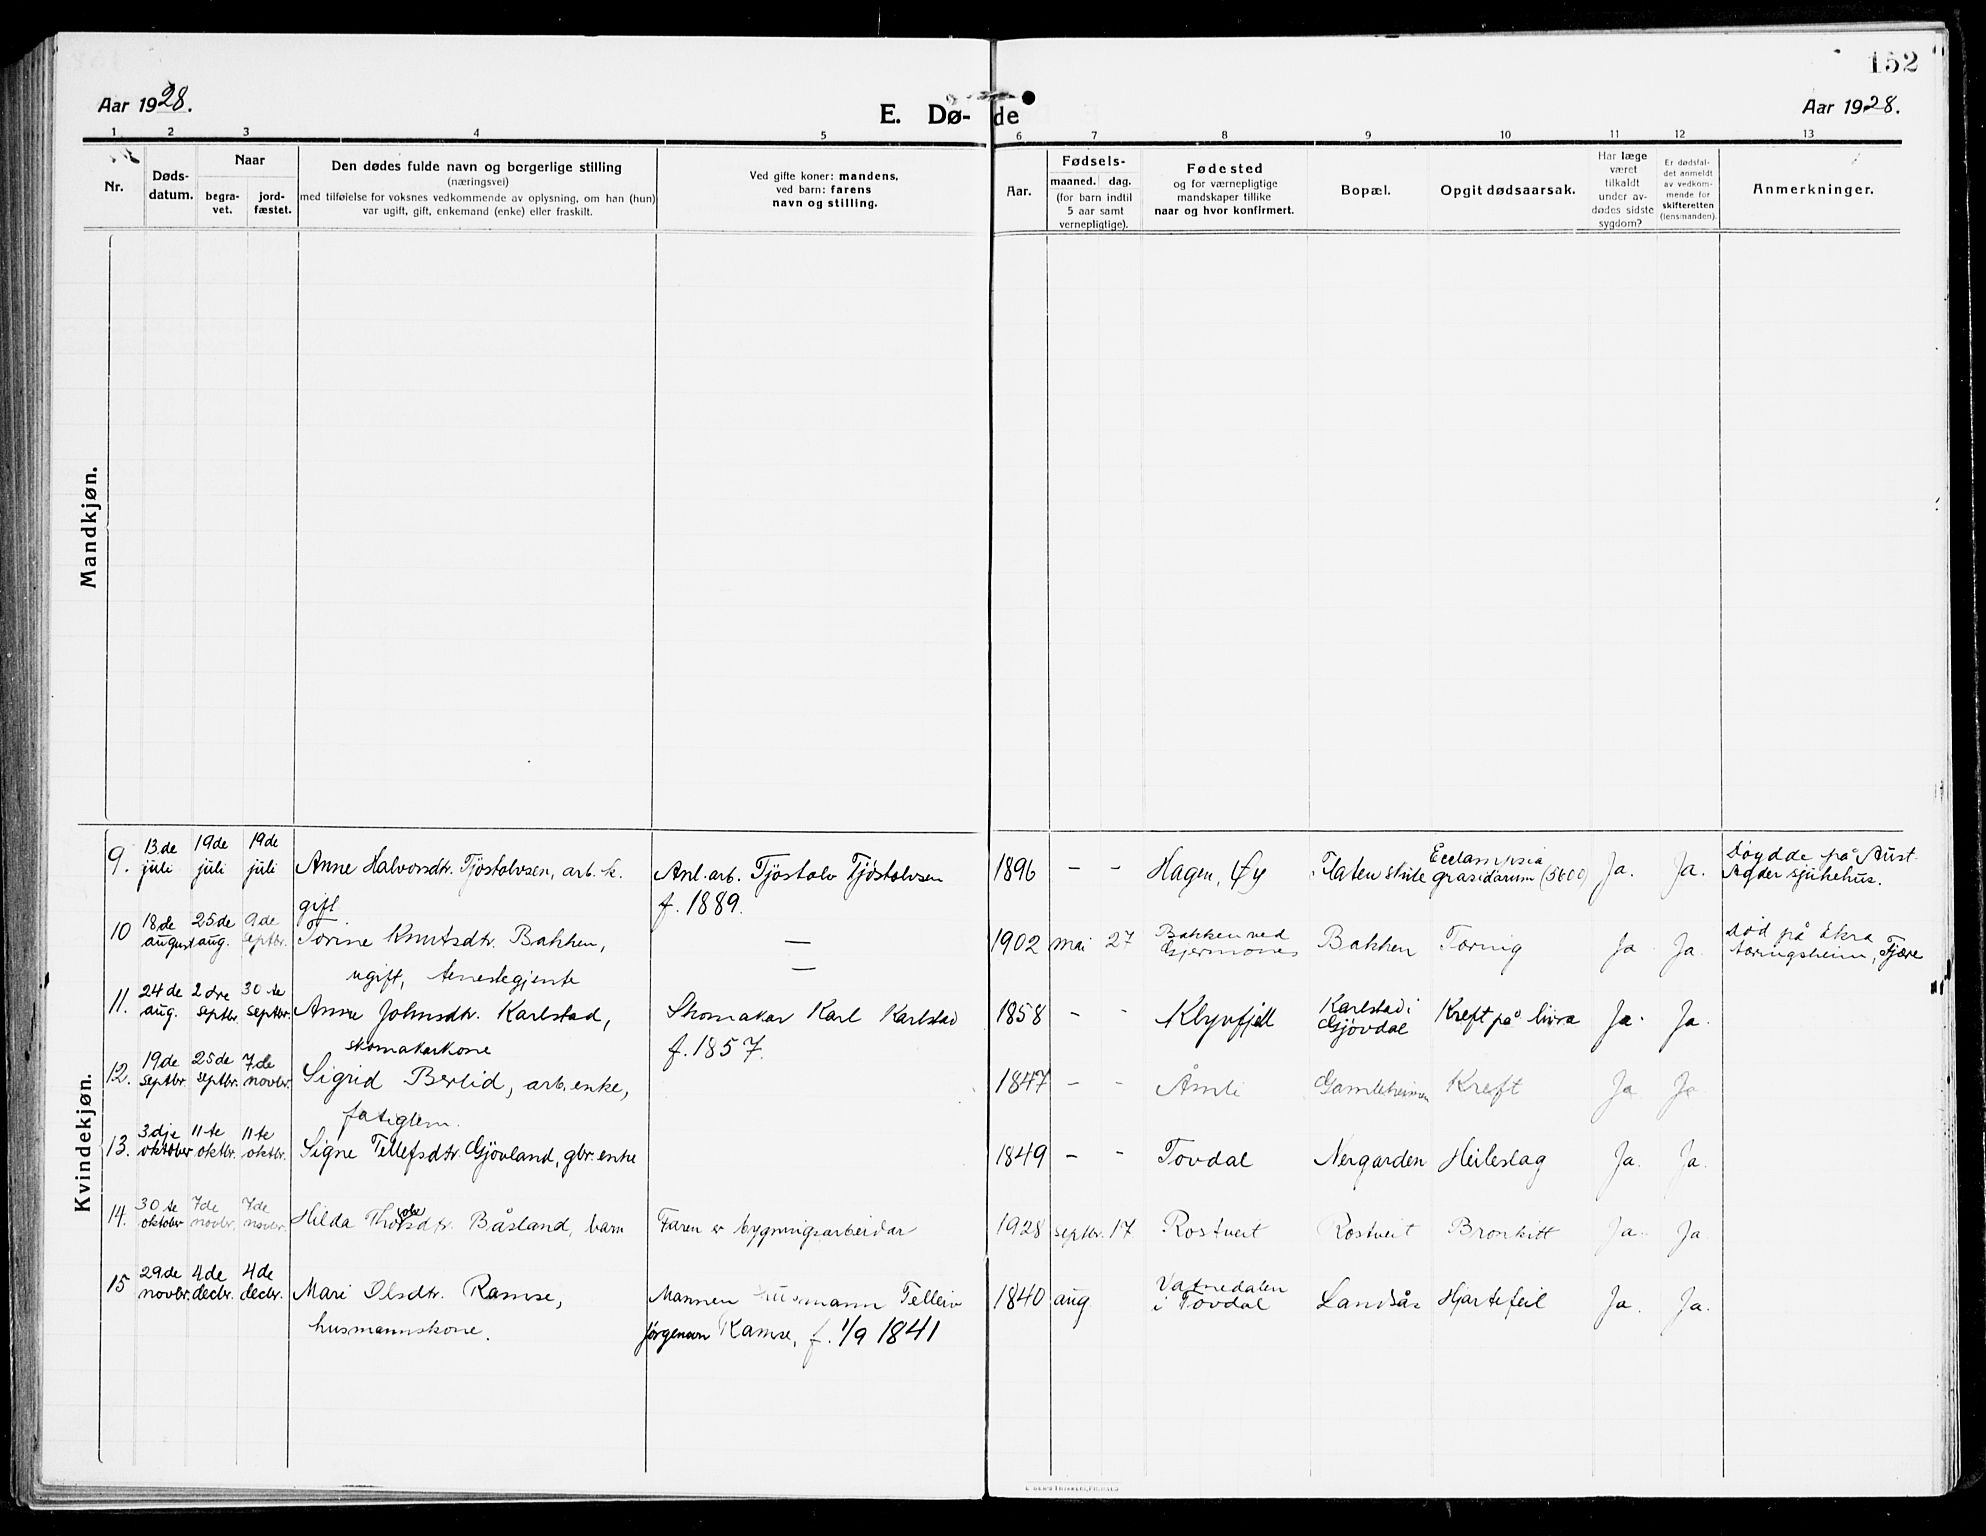 152
Aar 1928.
E. Dø-de
Aar 1928.
1 2 3 4 5 6 7 8 9 10 11 12 13
Nr.
Døds-
datum.
Naar
begra-
vet.
jord-
fæstet.
Den dødes fulde navn og borgerlige stilling
(næringsvei)
med tilføielse for voksnes vedkommende av oplysning, om han (hun)
var ugift, gift, enkemand (enke) eller fraskilt.
Ved gifte koner: mandens,
ved barn: farens
navn og stilling.
Aar.
Fødsels-
maaned. dag.
(for barn indtil
5 aar samt
vernepligtige).
Fødested
og for værnepligtige
mandskaper tillike
naar og hvor konfirmert.
Bopæl.
Opgit dødsaarsak.
Har læge
været
tilkaldt
under av-
dødes sidste
sygdom?
Er dødsfal-
det anmeldt
av vedkom-
mende for
skifteretten
(lensmanden).
Anmerkninger.
Mandkjøn.
Kvindekjøn.
9. 13.de juli 19de juli 19de juli Anne Halvorsdtr. Tjøstolvsen, arb. k. Anl. arb. Tjøstolv Tjøstolvsen 1896 - - Hagen, Øy Flaten Ecclampsia (5600) Ja. Ja. Døydde på Aust-
gift. f. 1889. Agder sjukehus.
10 18de august 25de aug. 9de septbr. Torine Knutsdtr. Bakken, — 1902 mai 27 Bakken ved Bakken Tæring Ja Ja. Død på Ekra
ugift, tenestegjente — Tæringsheim, Fjære
11. 24de aug. 2dre septbr. 30te septbr. Anne Johnsdtr. Karlstad, Skomakar Karl Karlstad 1858 - - Klyvfjell Karlstad i Gjøvdal Kreft på livra Ja. Ja.
skomakarkone f. 1857.
12. 19de septbr. 25de septbr. 7de novbr. Sigrid Berlid, arb. enke, 1847 - - Åmli Gamleheimen Kreft Ja Ja
fatiglem.
13. 3dje oktober 11te oktbr. 11te oktbr. Signe Tellefsdtr. Gjövland, gbr. enke 1849 - - Tovdal Nergarden Heileslag Ja. Ja.
14. 30te oktobr 7de novbr. 7de novbr. Hilda Båsland, barn Faren er bygningsarbeidar 1928 septbr. 17 Rostveit Rostveit Bronkitt Ja. Ja.
15 29de novbr. 4de decbr. 4de decbr. Mari Olsdtr. Ramse, Mannen husmann Telleiv 1840 aug Vatnedalen i Tovdal Landsås Hjartefeil Ja. Ja.
husmannskone. Jørgensen Ramse, f. 1/9 1841